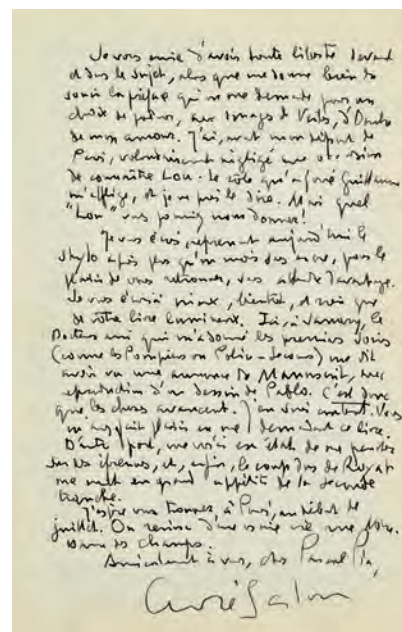 Je vous envie d'avoir toute liberté devant
et dans le sujet, alors que me donne bien du
souci la préface qu'on me demande pour un
choix de poèmes, aux images de Vents, d'
de mon amour. J'ai, avant mon départ de
Paris, volontairement négligé une occasion
de connaître Lou. Le rôle qu'a joué Guillaume
m'afflige, et je ne puis le dire. Mais quel
"Lou" vous pourriez nous donner!
Je vous écris, reprenant aujourd'hui le
stylo après plus qu'un mois sans encre, pour le
plaisir de vous retrouver, sans attendre davantage.
Je vous écrirai mieux, bientôt, et
de votre livre lumineux. Ici, à Vannery, le
Docteur ami qui m'a donné les premiers soins
(comme les Pompiers ou Police-Secours) me dit
avoir vu une annonce du Manuscrit, avec
reproduction d'un dessin de Pablo. C'est donc
que les choses avancent. J'en suis content. Vous
m'avez fait plaisir en me demandant ce livre.
D'autre part, me voici en état de me pencher
sur les épreuves, et, enfin, le coup dos de Royat
me met en grand appétit de la seconde
tranche.
J'espère vous trouver, à Paris, au début de
juillet. On reviendra
dans les champs.
Amicalement à vous, cher Pascal Pia,
André Salmon